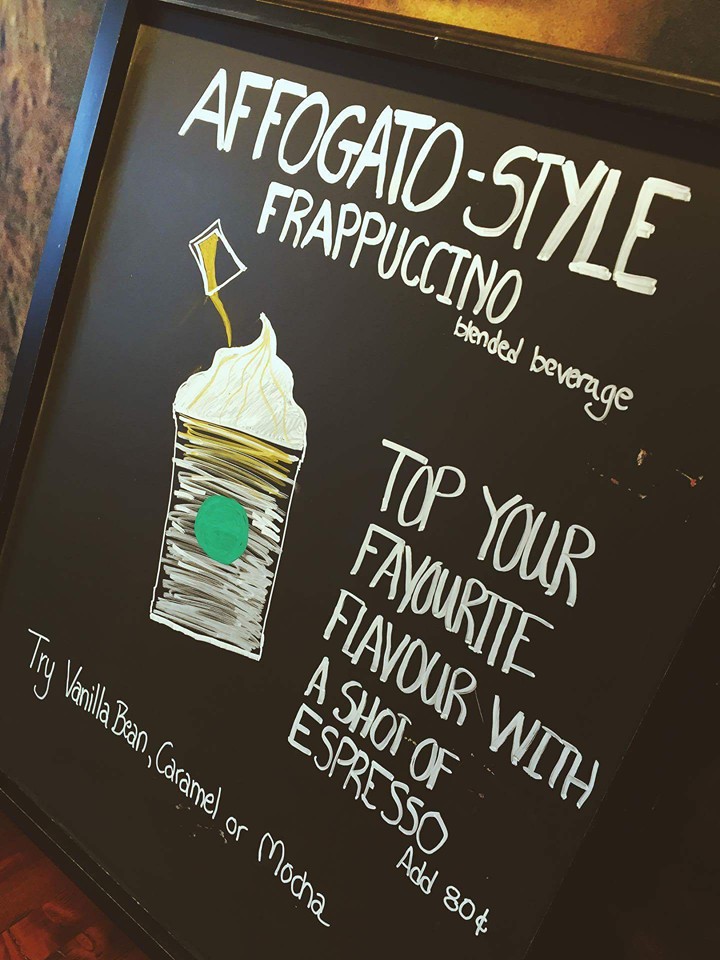 AFFOGATO-STYLE
FRAPPUCCINO
blended beverage
TOP YOUR
FAVOURITE
FLAVOUR WITH
A SHOT OF
ESPRESSO
Add 80¢
Try Vanilla Bean, Caramel or Mocha